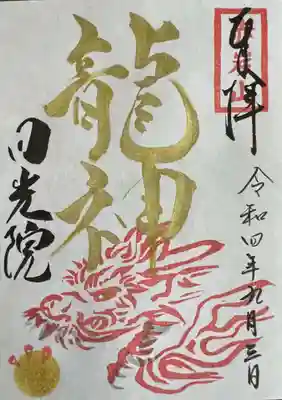 奉拝
令和四年九月三日
龍神
日光院